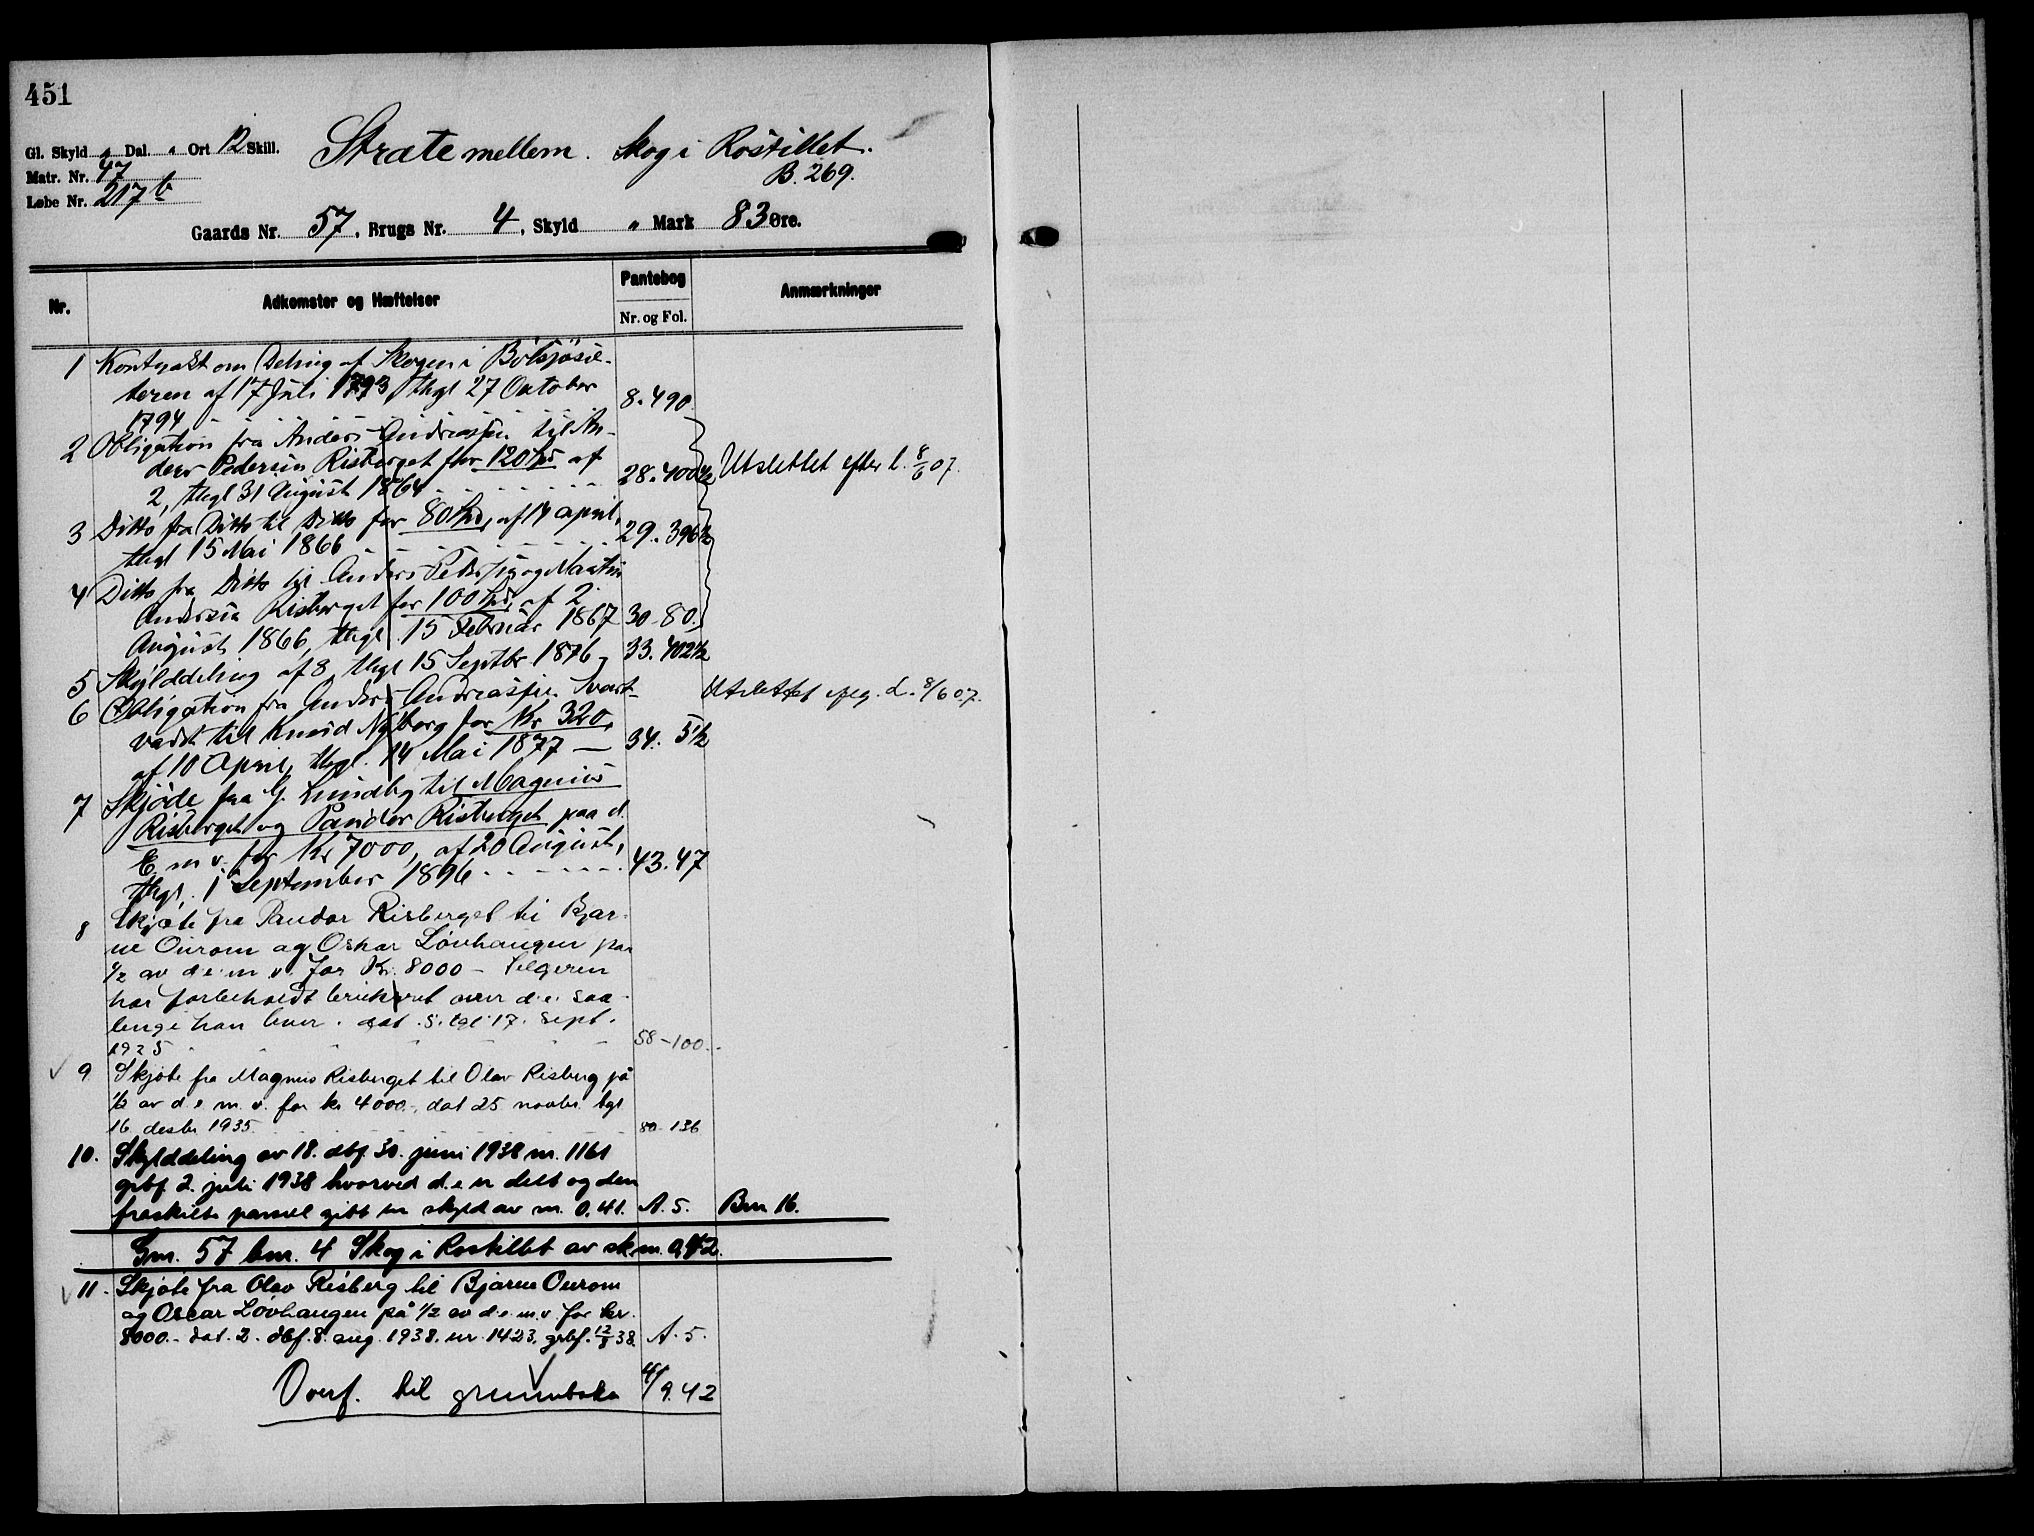 451
Gl. Skyld „ Dal. „ Ort 12 Skill.
Stræte mellem. Skog i Rostillet.
Matr. Nr. 47
B. 269.
Løbe Nr. 217 b
Gaards Nr. 57, Brugs Nr. 4, Skyld „ Mark 83 Øre.
Nr. Adkomster og Hæftelser Pantebog Anmærkninger
Nr. og Fol.
1 Kontrakt om Deling af Skogen i
teren af 17 Juli 1793, thgl 27 Oktober
1794 8. 490
2 Obligation fra Anders Andreassen til An-
ders Pedersen Risberget for 120 Spd af
2, thgl 31 August 1864 28. 400 1/2 Utslettet efter l. 8/6 07.
3 Ditto fra Ditto til Ditto for 80 Spd, af 14 april,
thgl 15 Mai 1866 29. 396 1/2
4 Ditto fra Ditto til Anders Peders og Martin
Andersen Risberget for 100 Spd, af 2
August 1866, thgl. 15 Februar 1867 30 - 80.
5 Skylddeling af 8, thgl 15 Septbr 1876 - 33. 402 1/2
6 Obligation fra Anders Andreassen Svart-
vadet til Knud Nyborg for Kr 320,
af 10 April, thgl. 14 Mai 1877 — 34. 5 1/2 Utslettet efter L. 8/6 07.
7 Skjøde fra G. Lundby til Magnus
Risberget og Pander Risberget paa d.
E. m. v. for Kr 7000, af 20 August,
thgl. 1 September 1896 43. 47
8 Skjøte fra Pander Risberget til Bjar-
ne Ourom og Oskar Løvhaugen paa
1/2 av d. e. m. v. for Kr. 8000 - Selgeren
har forbeholdt bruksret over d. e. saa-
lenge han lever. dat. 5. tgl. 17. sept.
1925 58 - 100.
9 Skjøte fra Magnus Risberget til Olav Risberg på
1/2 av d. e. m. v. for kr 4000.-, dat 25 novbr. tgl
16. desbr 1935 80 - 136
10. Skylddeling av 18. dbf. 30. juni 1938 nr. 1161
grbf 2. juli 1938 hvorved d. e. er delt og den
fraskilte parsel gitt en skyld av m. 0.41. A. 5. Bnr 16.
Gnr. 57 bnr. 4 Skog i Rostillet av skm. 0,42.
11. Skjøte fra Olav Risberg til Bjarne Ourom
og Oscar Løvhaugen på 1/2 av d. e. m. v. for kr.
8000.- dat. 2. dbf. 8. aug. 1938. nr. 1423. grbf. 12/8 38. A. 5.
Overf. til grunnboka 4/9.42